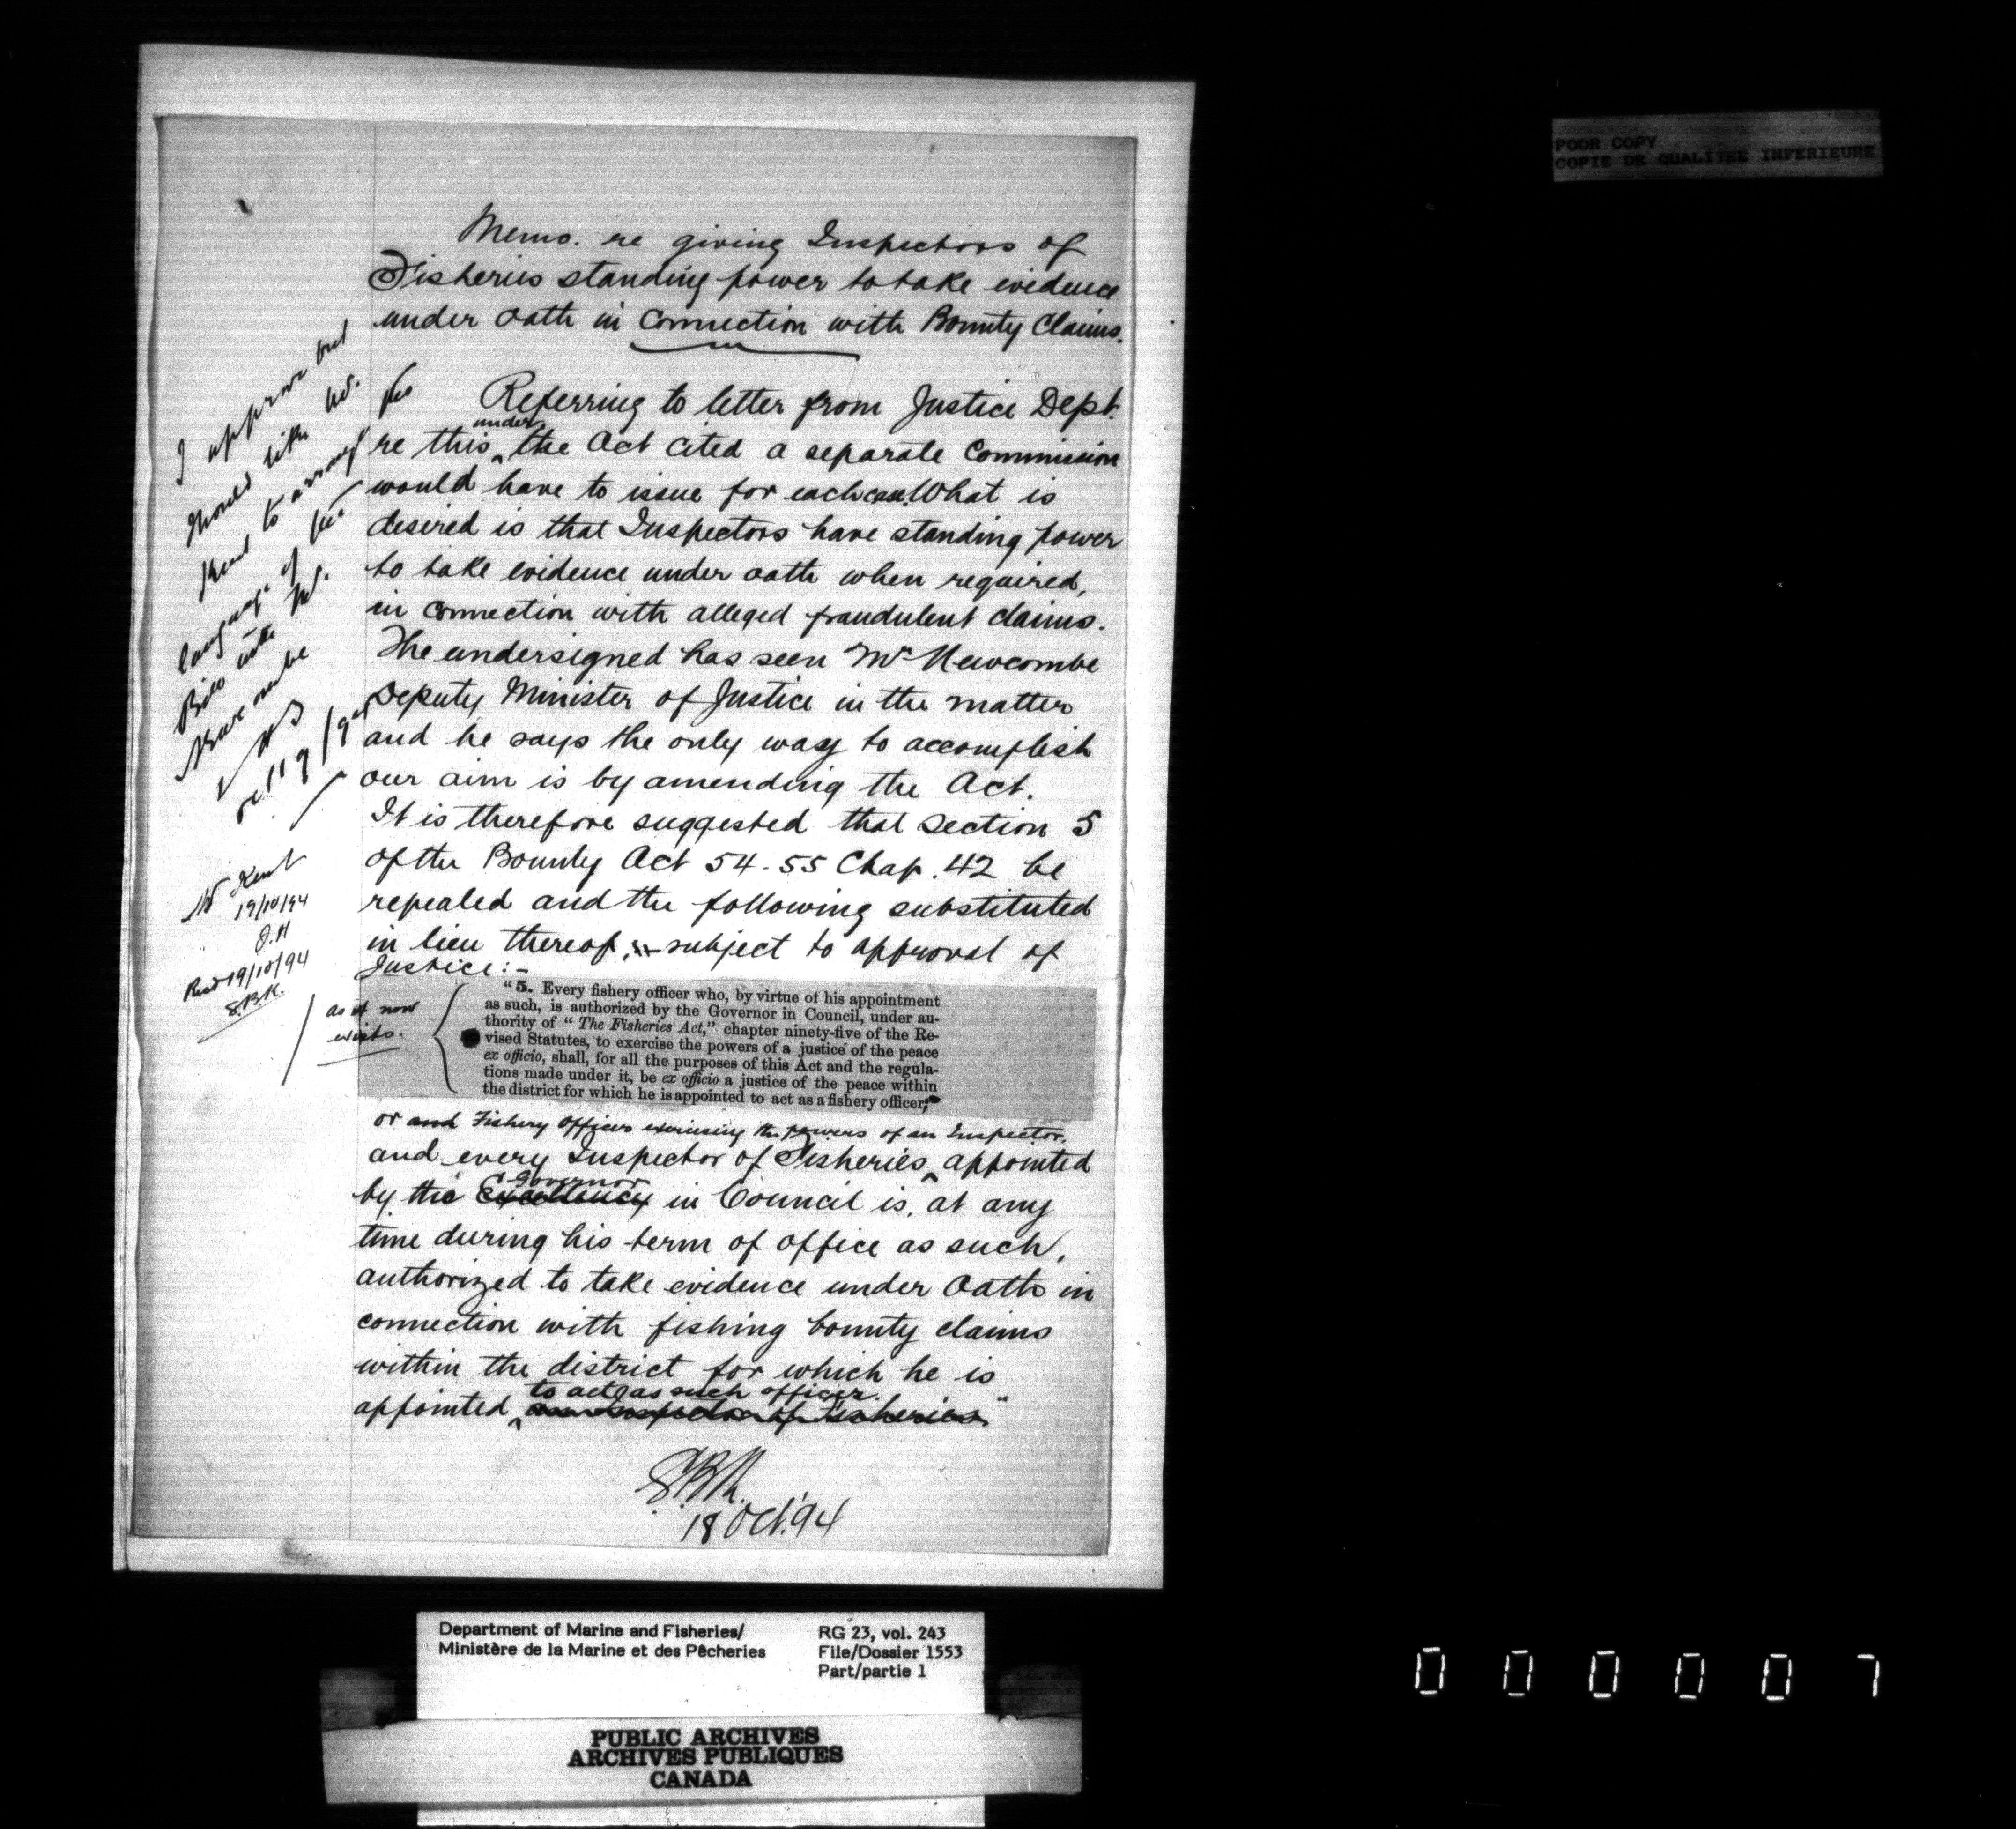 POOR COPY
COPIE DE QUALITEE INFERIEURE
Memo. re giving Inspectors of
Fisheries standing power to take evidence
under oath in connection with Bounty Claims.
Referring to letter from Justice Dept.
re this, under the Act cited a separate Commission
would have to issue for each case. What is
desired is that Inspectors have standing power
to take evidence under oath when required,
in connection with alleged fraudulent claims.
The undersigned has seen Mr Newcombe
Deputy Minister of Justice in the matter
and he says the only way to accomplish
our aim is by amending the Act.
It is therefore suggested that section 5
of the Bounty Act 54-55 Chap. 42 be
repealed and the following substituted
in lieu thereof, subject to approval of
Justice:-
"5. Every fishery officer who, by virtue of his appointment
as such, is authorized by the Governor in Council, under au-
thority of "The Fisheries Act," chapter ninety-five of the Re-
vised Statutes, to exercise the powers of a justice of the peace
ex officio, shall, for all the purposes of this Act and the regula-
tions made under it, be ex officio a justice of the peace within
the district for which he is appointed to act as a fishery officer;
or and Fishery Officer exercising the powers of an Inspector,
and every Inspector of Fisheries appointed
by the Excellency Governor in Council is, at any
time during his term of office as such,
authorized to take evidence under Oath in
connection with fishing bounty claims
within the district for which he is
appointed to act as such officer.
as Inspector of Fisheries"
S.B.K.
18 Oct. 94
I approve but
should like Mr.
Kent to arrange
language of
Bill with Mr.
Newcombe
Oct 19/94
Mr Kent
19/10/94
J.H
Recd 19/10/94
S.B.K.
as it now
exists.
Department of Marine and Fisheries/
Ministère de la Marine et des Pêcheries
RG 23, vol. 243
File/Dossier 1553
Part/partie 1
PUBLIC ARCHIVES
ARCHIVES PUBLIQUES
CANADA
000007